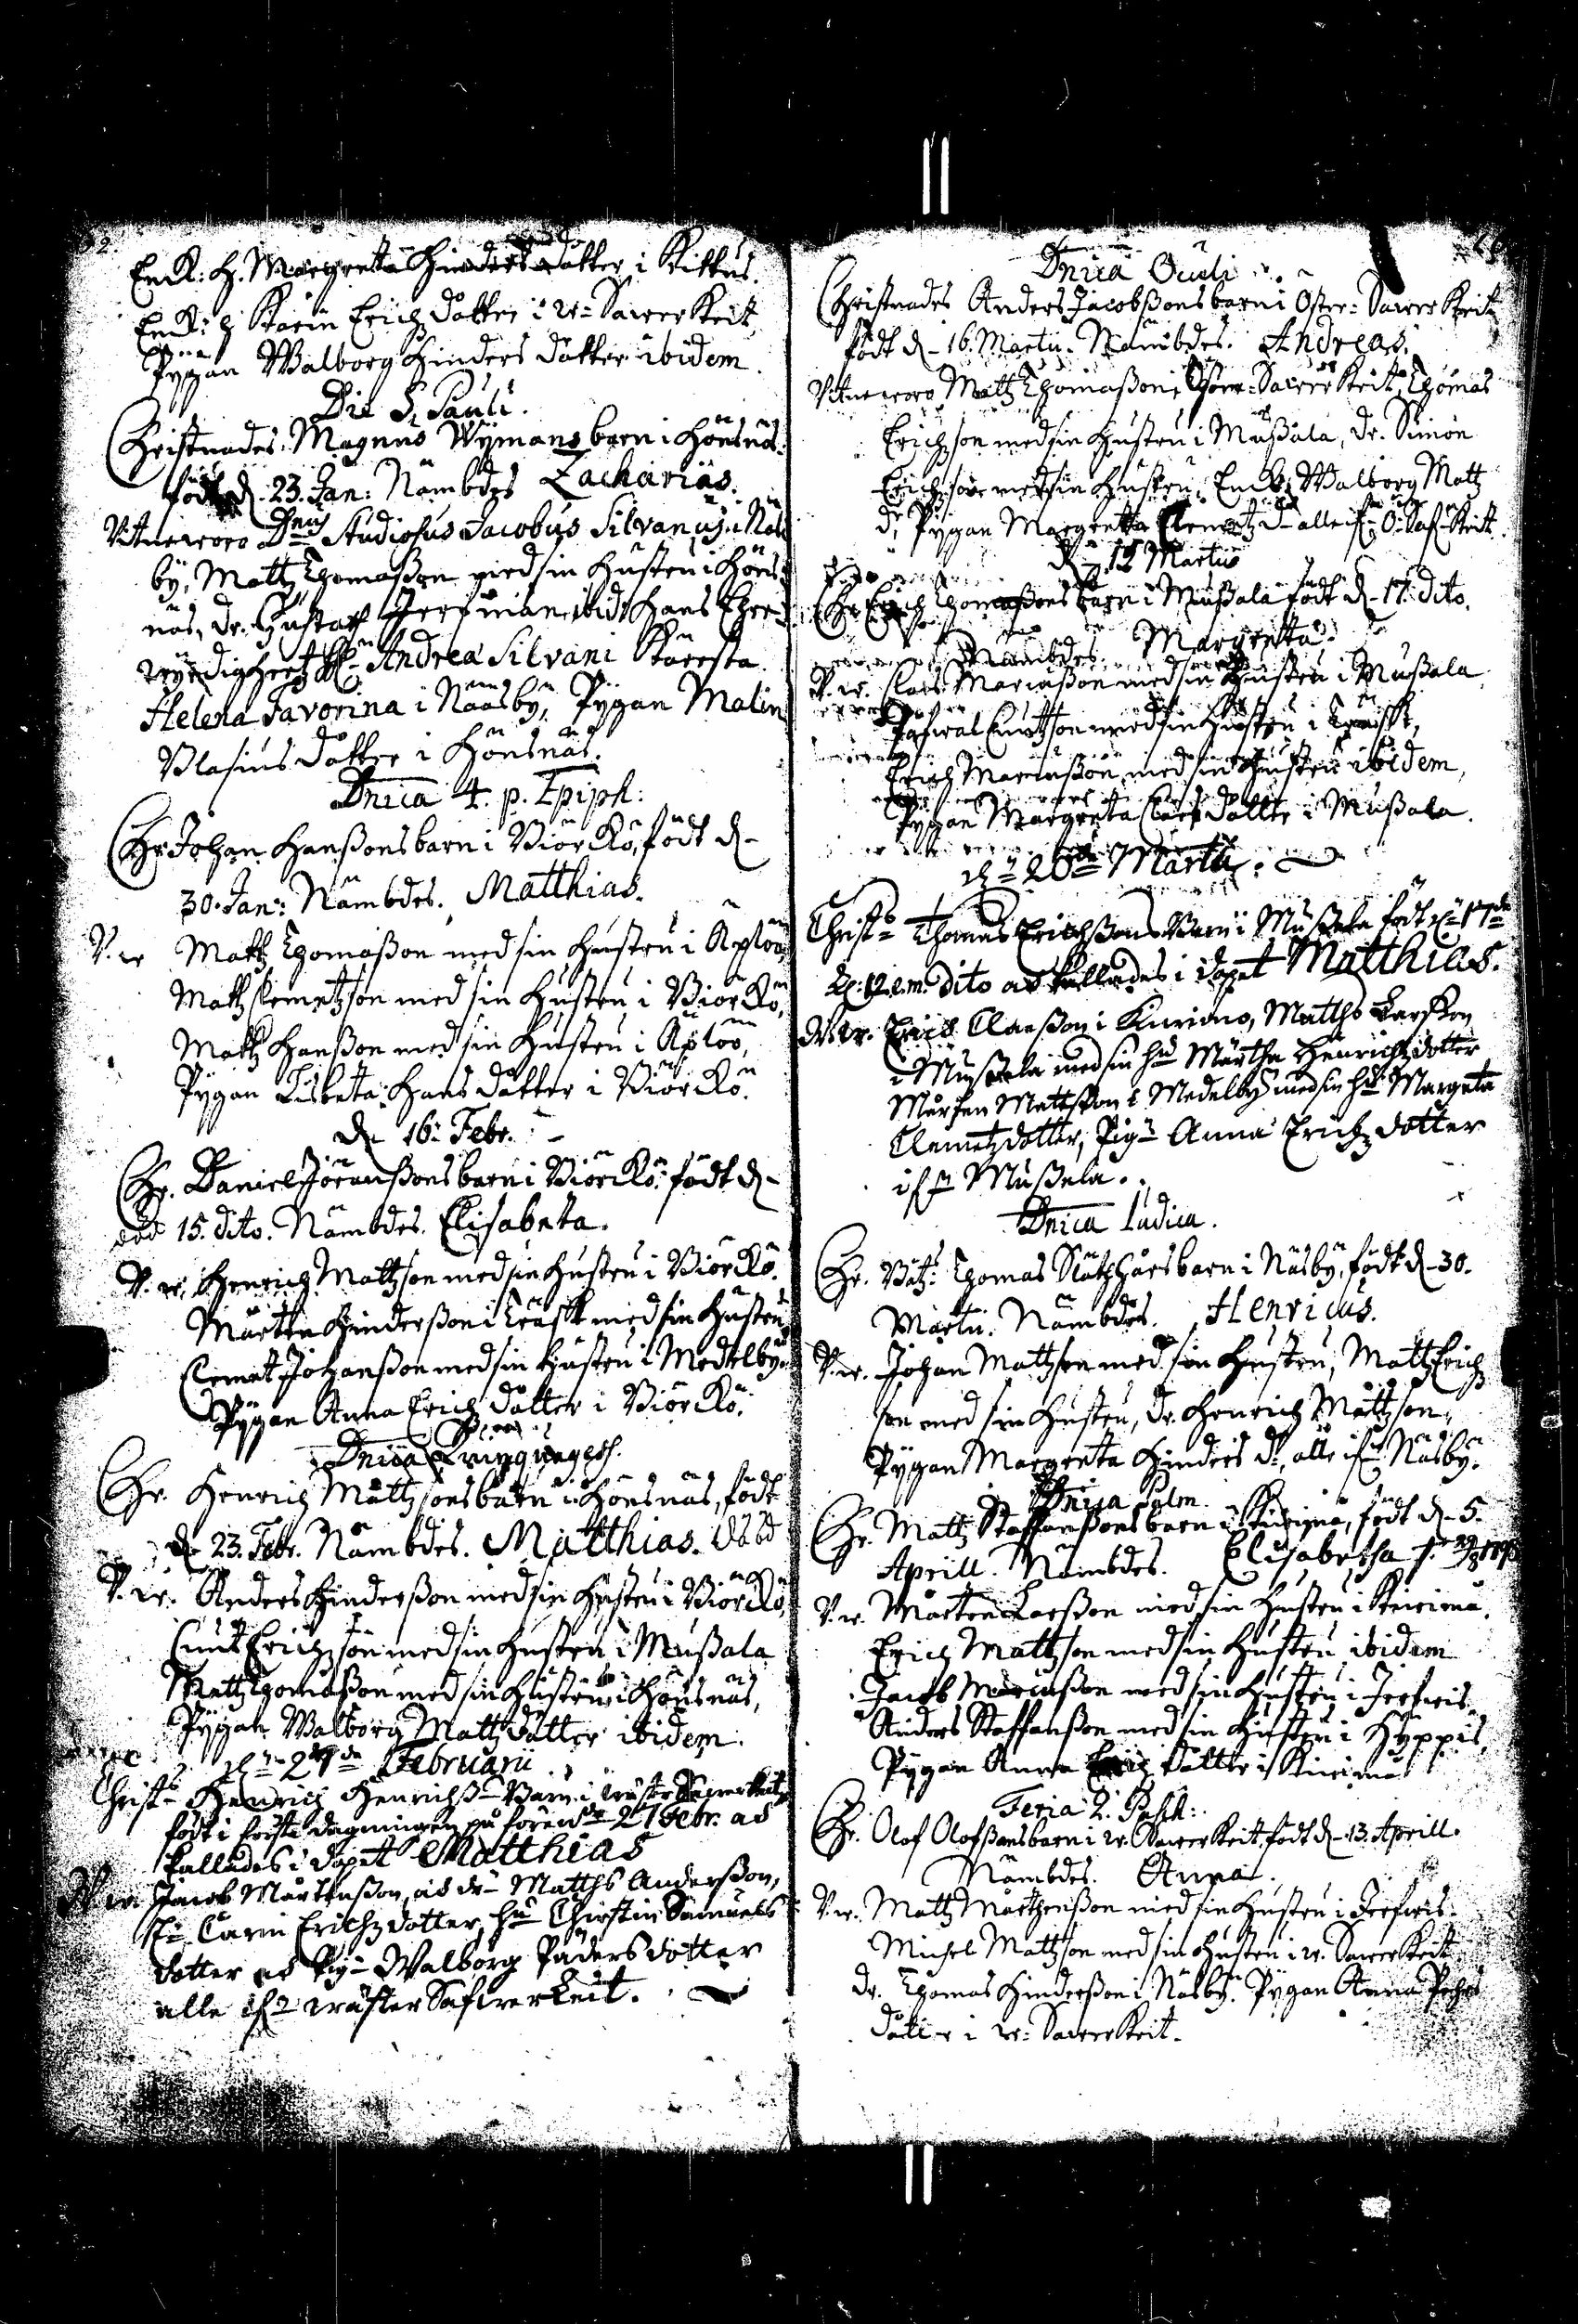 Enk: H. Margreta Hinders dåtter i Kittus.
Enk: H Karin Erichz dåtter i W= Sawerkeit
Pygan Walborg Hinders dåtter ibidem.
Die S. Pauli.
Christnades Magnus Wijmans barn i Hönsnäs.
födt d. 23. Jan: Nämbdes Zacharias.
Vitne woro Dnus Studiosus Jacobus Silvanus i Näs
by, Mattz Thomaßon med sin Hustru i Höns
näs, dr. Gustaff ibid: Hans Ehre
wyrdigheetz Andreæ Silvani
Helena Favorina i Näasby, Pygan Malin
Blasius dåtter i Hönsnäs.
Dnica 4. p. Epiph:
Chr. Johan Hanßons barn i Biörkö, födt d.
30. Jan: Nämbdes. Matthias.
V. w Mattz Thomaßon med sin Hustru i Aplöö,
Mattz Clemetzson med sin Hustru i Biörkö,
Mattz Hanßon med sin Hustru i Aplöö,
Pygan Lisbeta Hans dåtter i Biörkö.
d. 16. Febr.
Chr. Daniel Jöranßons barn i Biörkö, födt d.
död 15. dito. Nämbdes. Elisabeta.
V. w. Henrich Mattzson med sin Hustru i Biörkö.
Mårten Hinderßon i Träsk med sin Hustru
Clemet Johanßon med sin Hustru i Medelby
Pygan Anna Erich dåtter i Biörkö.
Dnica Quinquagess.
Chr. Henrich Mattzsons barn i Hönsnäs, födt
d. 23. Febr. Nämbdes. Matthias. död
V. w. Anders Hinderßon med sin Hustru i Biörkö,
Cnut Erichzson med sin Hustru i Mußala
Mattz Thomaßon med sin Hustru i Hönsnäs,
Pygan Walborg Mattz dåtter ibidem.
Februarii
Christ= Henrich Henrichß= Barn i wäster Sawerkeit
födt i första dagningen på 21 Febr. as
kallades i dopet Matthias
W. w. Jacob Mårtenßon, as dr= Matths Anderßon,
Carin Erichz dotter, Hu Chirstin Samuels
dotter as Pig= Walborg Päders dotter
alle if= wäster Safwerkeit.
Dnica Oculi
Christnades Anders Jacobßons barn i Öster= Sawerkeit
födt d. 16. Martii. Nämbdes. Andreas.
Vitne woro Mattz Thomaßon i Öster= Sawerkeit, Thomas
Erichson med sin Hustru i Mußala, Dr. Simon
Erichson med sin Hustru, Enk: Walborg Mattz
dr, Pygan Margretta Clemetz d= alle if= Ö. Saf= Keit.
Martii
Chr Erich Thomaßons barn i Mußala födt d. 17. dito.
Nämbdes. Margretta
V. w. Claes Marcußon med sin Hustru i Mußala
Cnutzson med sin Hustru i Träsk,
Erich Marcußon med sin Hustru ibidem,
Pygan Margreta Claes dåtter i Mußala.
d= 20 Martii.
Christ= Thomas Erichßons Barn i Mußala födt d= 17
dito as kallades i dopet Matthias.
W. w. Erich Claeßon i Kurimo, Matths Larßon
i Mußala med sin Hu Martha Henrichz dotter
Mårten Mattßon i Medelby med sin Hu Margeta
Clemetz dotter, Pig= Anna Erichz dotter
if= Mußala.
Dnica Judica.
Chr. Båtz: Thomas Släthårs barn i Näsby, födt d. 30.
Martii. Nämbdes. Henricus.
V. w. Johan Mattzson med sin Hustru, Mattz Erich
son med sin Hustru, dr. Henrich Mattzson,
Pygan Margreta Hinders d., alle if= Näsby.
Dnica Palm.
Chr. Mattz Staffanßons barn i Kurima, födt d. 5.
Aprill. Nämbdes. Elisabetha
V. w. Mårten Larßon med sin Hustru i Kurima.
Erich Mattzson med sin Hustru ibidem
Jacob Marcußon med sin Hustru i Jerfwis.
Anders Staffanßon med sin Hustru i Hyppis,
Pygan Anna Erich dåtter i Kurima
Feria 2. Pasch:.
Chr. Olof Olofßons barn i W. Sawerkeit, födt d. 13. Aprill.
Nämbdes. Anna.
V. w. Mattz Mårthenßon med sin Hustru i Jerfwis.
Michel Mattzson med sin Hustru i W. Sawerkeit
dr. Thomas Hinderßon i Näsby. Pygan Anna Pehrs
dåtter i W= Sawerkeit.